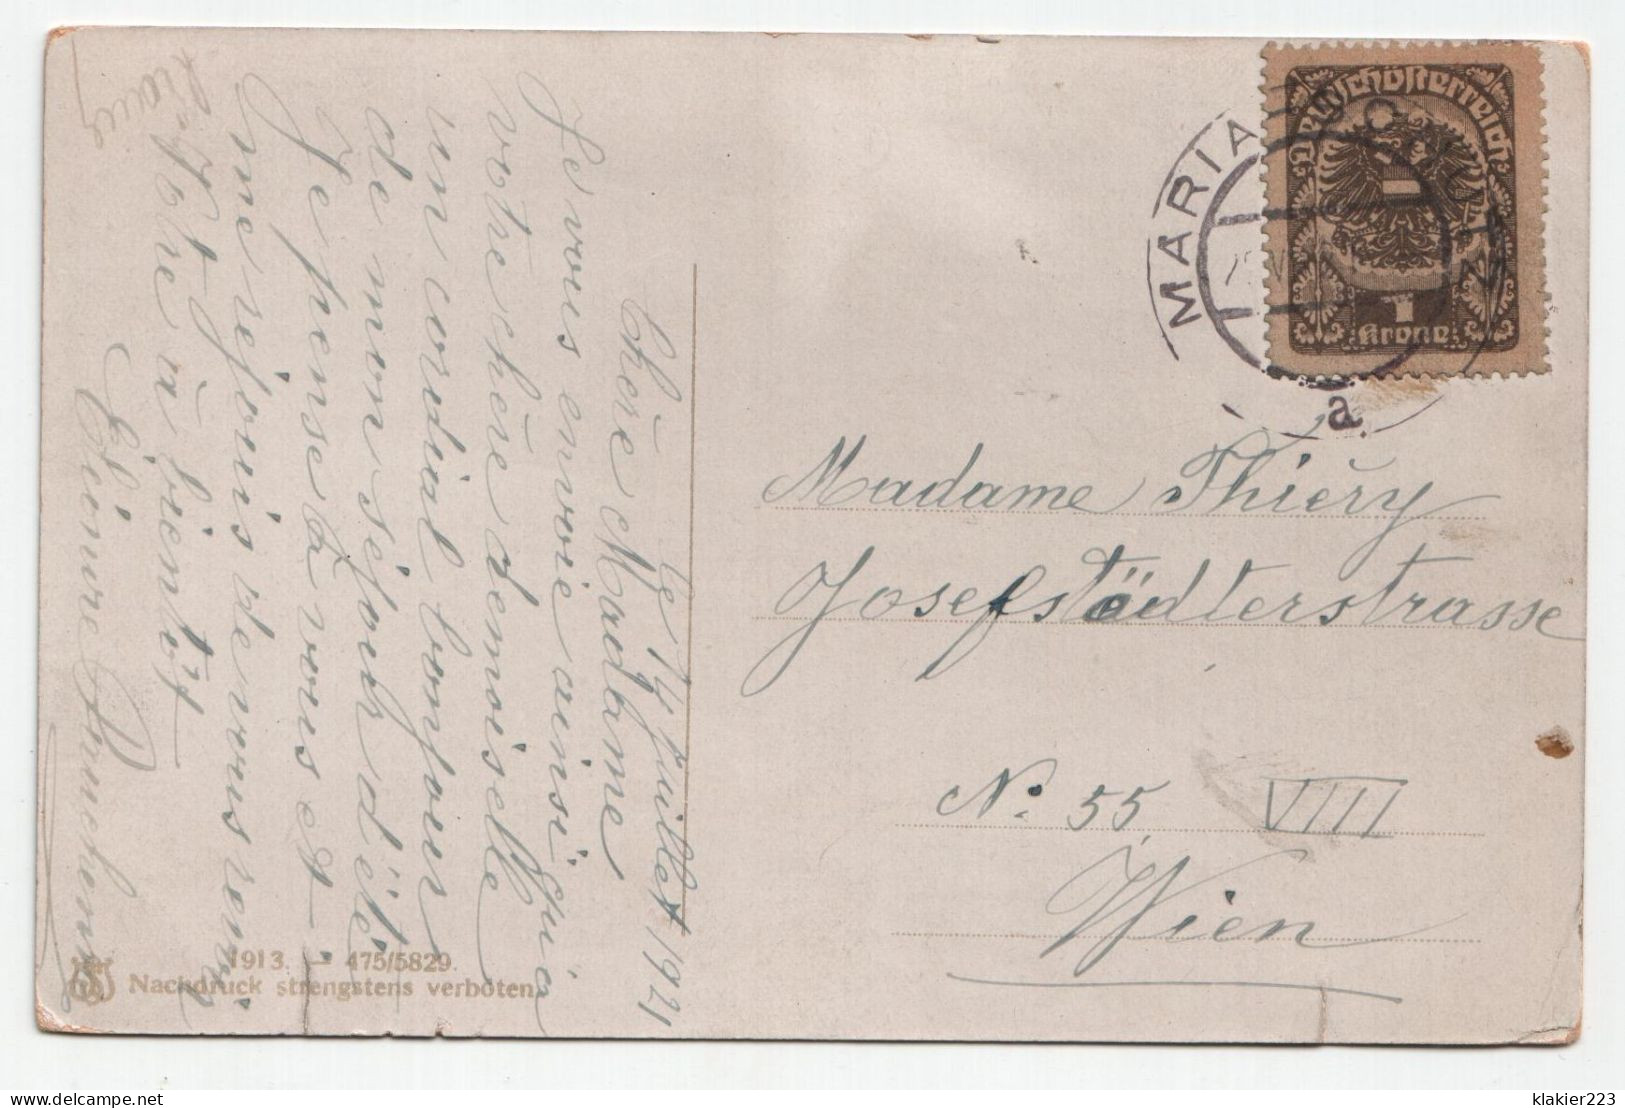 Le 14 juillet 1921
Chère Madame
Je vous envoie ainsi qu'à
votre chère demoiselle
un cordial bonjour
de mon séjour d'été
Je pense à vous et
me réjouis de vous revoir
Votre à bientôt
Elémire
Deutschösterreich
1
Krone
MARIA
a
Madame Thiery
Josefstädterstrasse
No. 55 VIII
Wien
1913. – 475/5829.
Nachdruck strengstens verboten
delcampe.net
klakier223